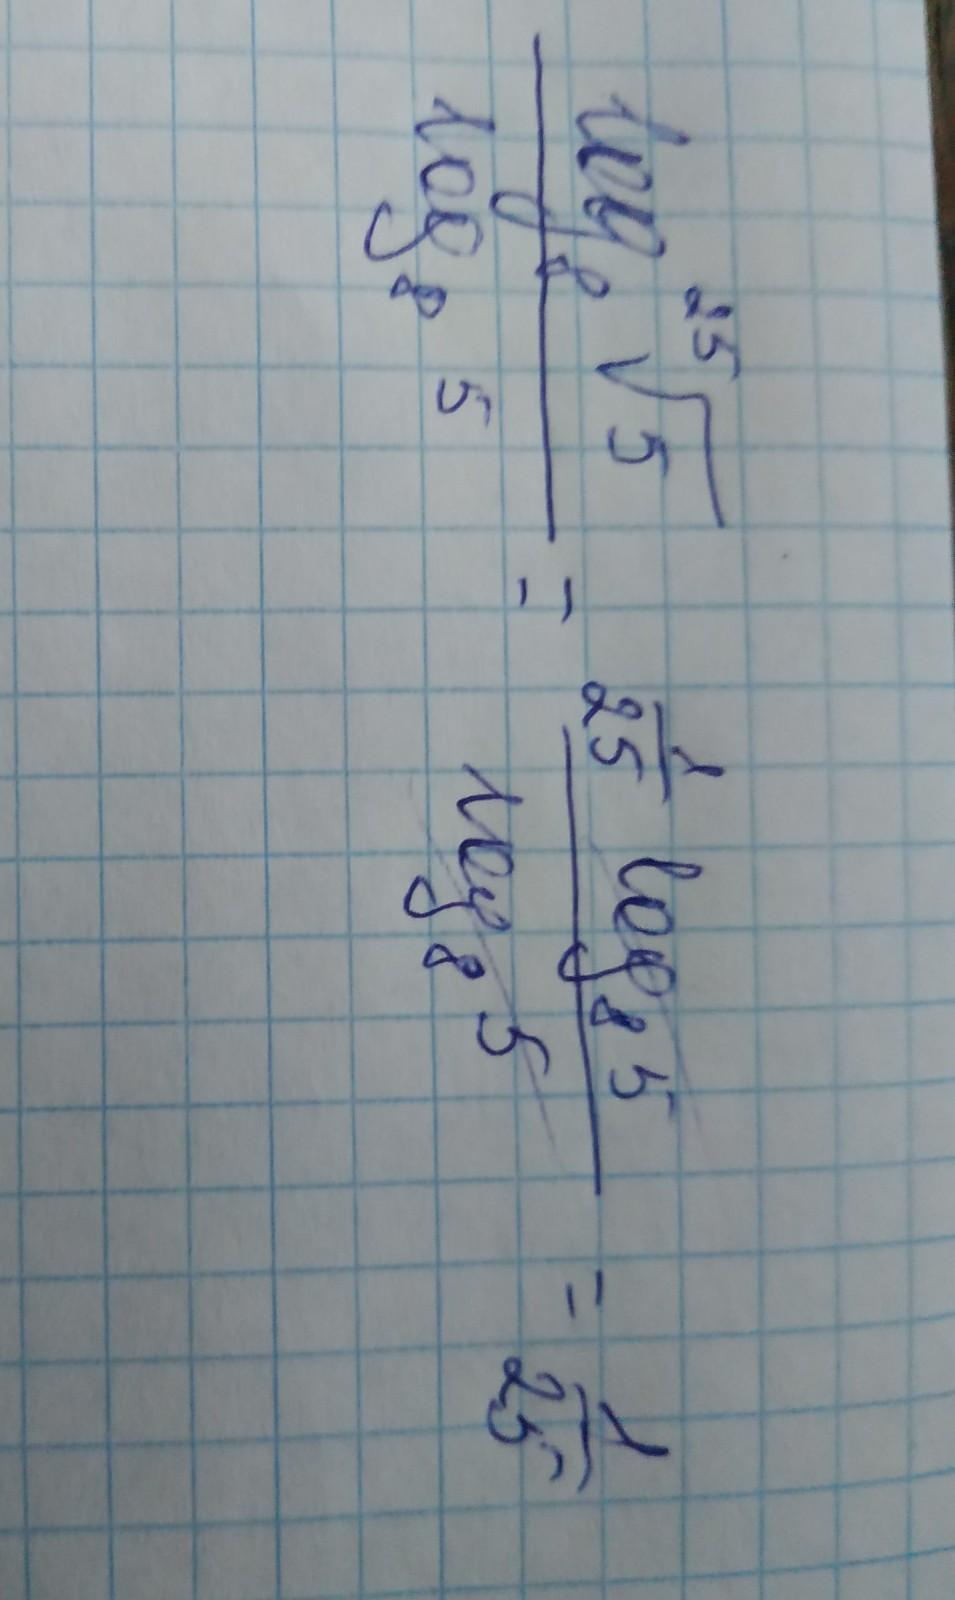 \frac{\log_8 \sqrt[25]{5}}{\log_8 5} = \frac{\frac{1}{25} \log_8 5}{\log_8 5} = \frac{1}{25}